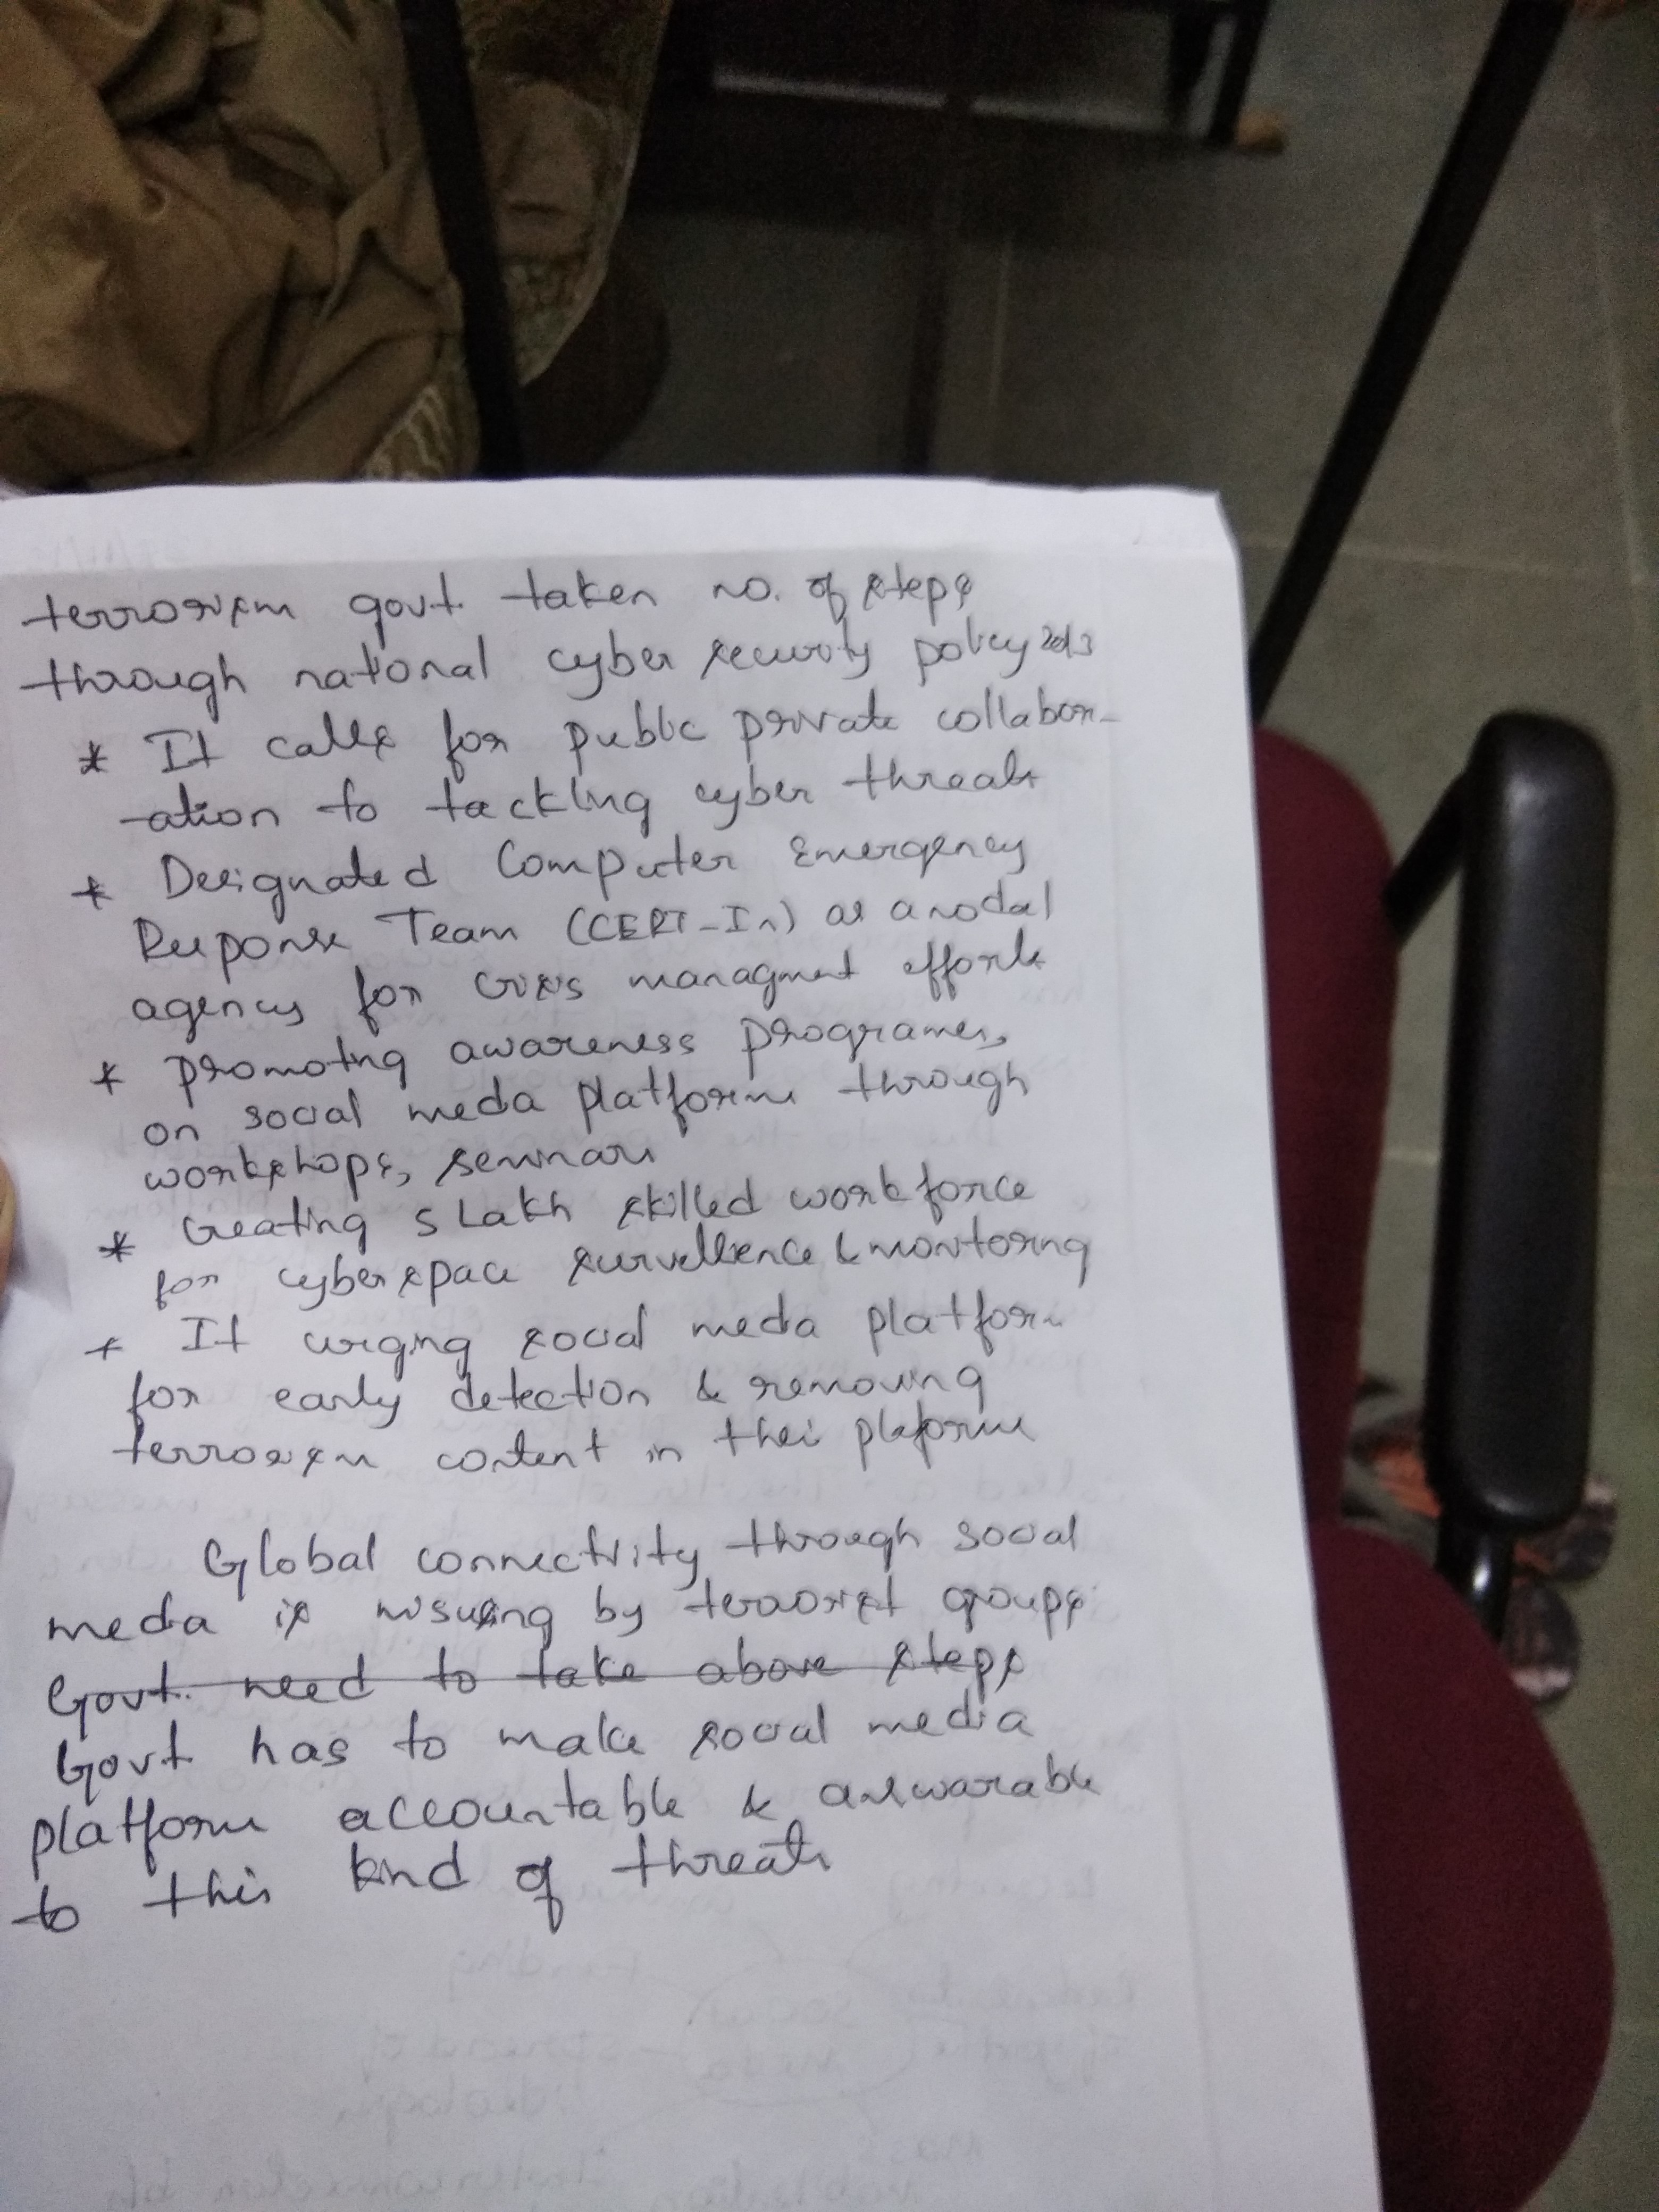 terrorism govt. taken no. of steps
through national cyber security policy 2013
* It calls for public private collabor-
-ation to tackling cyber threats
* Designated Computer Emergency
Response Team (CERT-In) as a nodal
agency for crisis managment efforts
* promoting awareness programes,
on social media platforms through
workshops, seminars
* Creating 5 Lakh skilled workforce
for cyberspace survellience & monitoring
* It urging social media platform
for early detection & removing
terrorism content in thei plaform
Global connectivity through social
media is misusing by terrorist groups
Govt. need to take above steps
Govt has to make social media
platform accountable & answarable
to this kind of threats